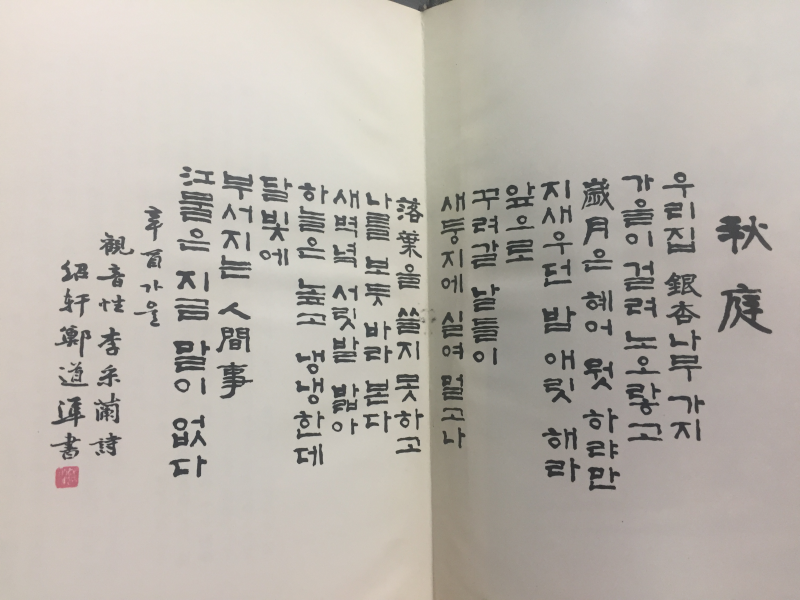 秋庭
우리집 銀杏나무 가지
가을이 걸려 노오랗고
歲月은 혜어 뭣 하랴만
지새우던 밤 애릿 해라
앞으로
꾸려갈 날들이
새둥지에 실여 멀고나
落葉을 쓸지 못하고
나를 보듯 바라본다
새벽녘 서릿발 밟아
하늘은 높고 냉냉한데
달빛에
부서지는 人間事
江물은 지금 말이 없다
辛酉가을
観音性 李采蘭 詩
紹軒 鄭道準 書